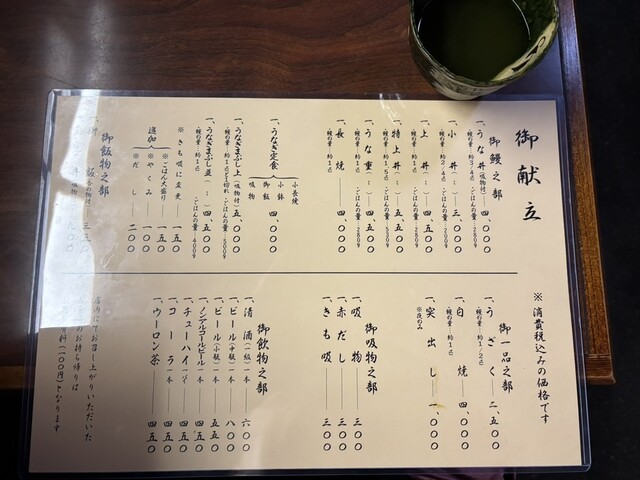 御献立
御鰻之部
一、うな丼(吸物付) 四、〇〇〇
・鰻の量…約3/4匹 ・ごはんの量…280g
一、小丼(〃) 三、〇〇〇
・鰻の量…約2/4匹 ・ごはんの量…200g
一、上丼(〃) 四、五〇〇
・鰻の量…約1匹 ・ごはんの量…280g
一、特上丼(〃) 五、五〇〇
・鰻の量…約1.5匹 ・ごはんの量…330g
一、うな重(〃) 四、五〇〇
・鰻の量…約1匹 ・ごはんの量…280g
一、長焼 四、〇〇〇
・鰻の量…約1匹
一、うなぎ定食 四、〇〇〇
小長焼
小鉢
御飯
吸物
一、うなぎまぶし上(吸物付) 五、〇〇〇
一、うなぎまぶし並(〃) 四、〇〇〇
・鰻の量…約1匹 ・ごはんの量…400g
※きも吸に変更 一五〇
追加
※ごはん大盛り 一五〇
※やくみ 一〇〇
※だし 二〇〇
御飯物之部
※消費税込みの価格です
御一品之部
一、うざく 二、五〇〇
・鰻の量…約1/2匹
一、白焼 四、〇〇〇
・鰻の量…約1匹
一、突出し 一、〇〇〇
※夜のみ
御吸物之部
一、吸物 三〇〇
一、赤だし 三〇〇
一、きも吸 三〇〇
御飲物之部
一、清酒(一級)一本 六〇〇
一、ビール(中瓶)一本 八〇〇
一、ビール(小瓶)一本 五五〇
一、ノンアルコールビール一本 四五〇
一、チューハイ 四五〇
一、コーラ一本 四五〇
一、ウーロン茶 四五〇
店内にてお召し上がりいただいた
のお持ち帰りは
料(一〇〇円)となります